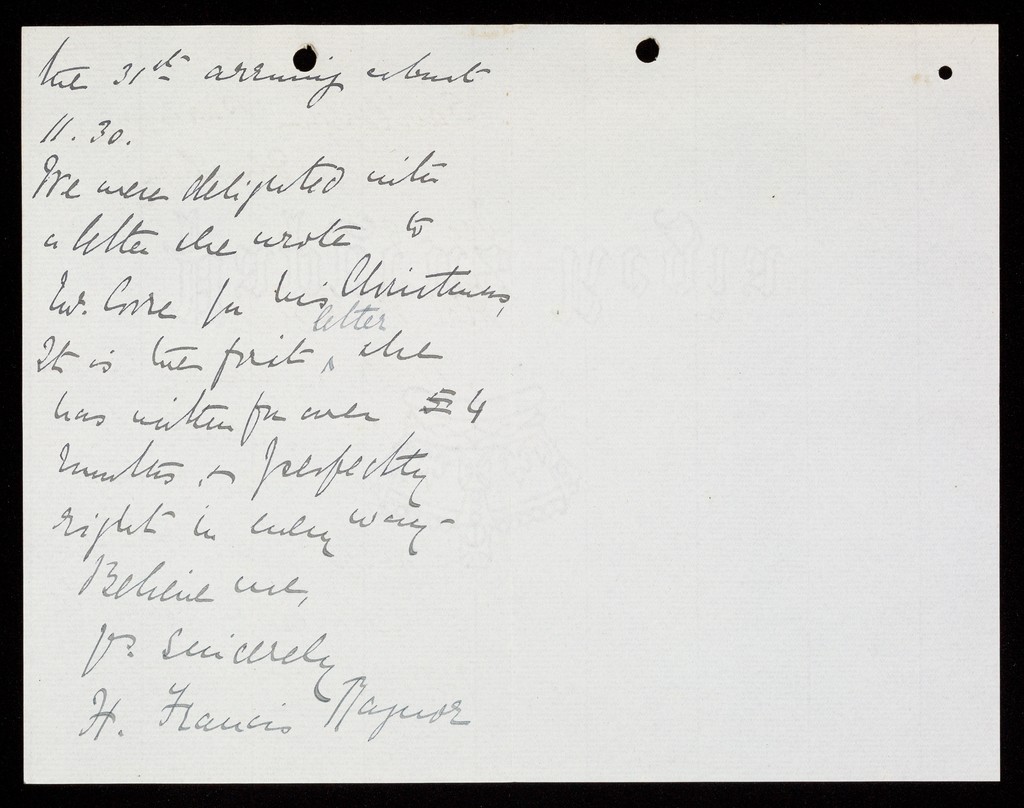 the 31st arriving about
11.30.
We were delighted with
a letter she wrote to
Mr. Corre for his Christmas,
It is the first ^ letter she
has written for over 5 4
months, & perfectly
right in every way -
Believe me,
yrs. sincerely
H. Francis Raynor